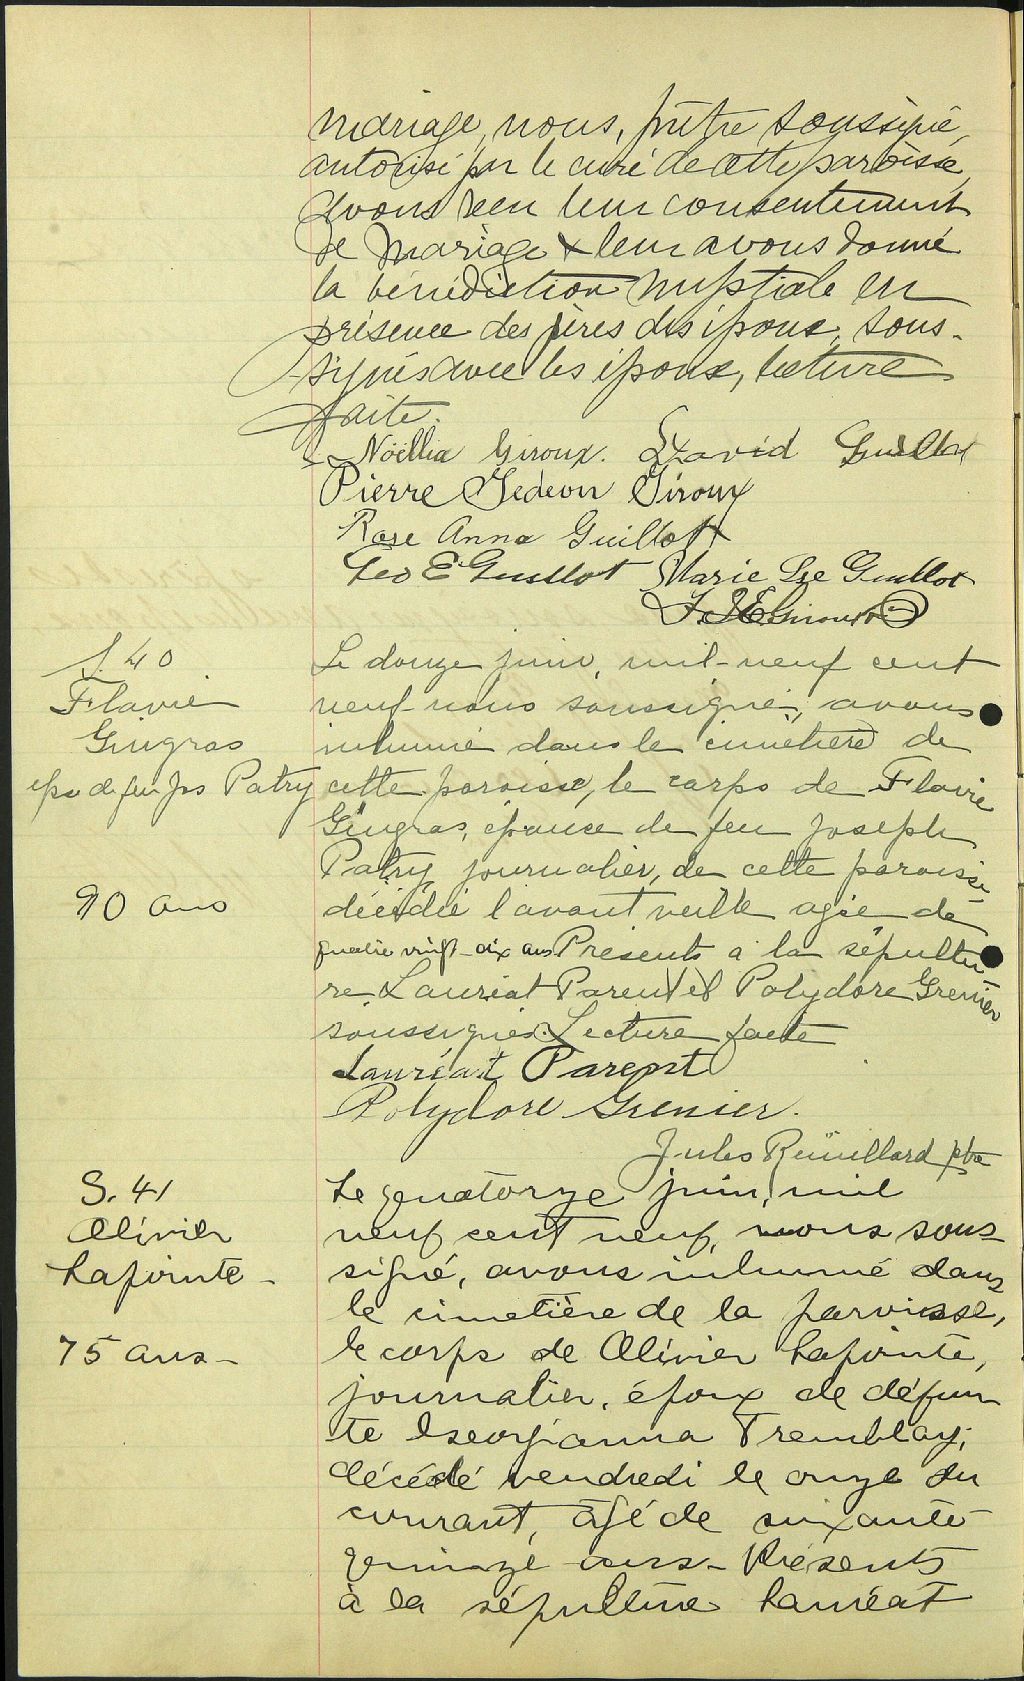 mariage, nous, prêtre soussigné,
autorisé par le curé de cette paroisse,
avons reçu leur consentement
de mariage & leur avons donné
la bénédiction nuptiale en
présence des pères des époux, sous-
signés avec les époux, lecture
faite.
Noëllia Giroux. David Guillot
Pierre Gedeon Giroux
Rose Anna Guillot
Geo E Guillot Marie Lse Guillot
S. 40
Flavie
Gingras
épse de feu Jos Patry
90 ans
Le douze juin, mil-neuf cent
neuf nous soussigné, avons
inhumé dans le cimetière de
cette paroisse, le corps de Flavie
Gingras, épouse de feu Joseph
Patry journalier, de cette paroisse
décédée l'avant veille agée de
quatre vingt-dix ans Présents a la sépultu-
re, Lauréat Parent et Polydore Grenier
soussignés. Lecture faite
Lauréat Parent
Polydore Grenier.
Jules Rouillard ptre
S. 41
Olivier
Lapointe -
75 ans -
Le quatorze juin, mil
neuf cent neuf, nous sous-
signé, avons inhumé dans
le cimetière de la paroisse,
le corps de Olivier Lapointe,
journalier, époux de défun-
te Georgianna Tremblay,
décédé vendredi le onze du
courant, âgé de soixante
quinze ans - Présents
à la sépulture Lauréat